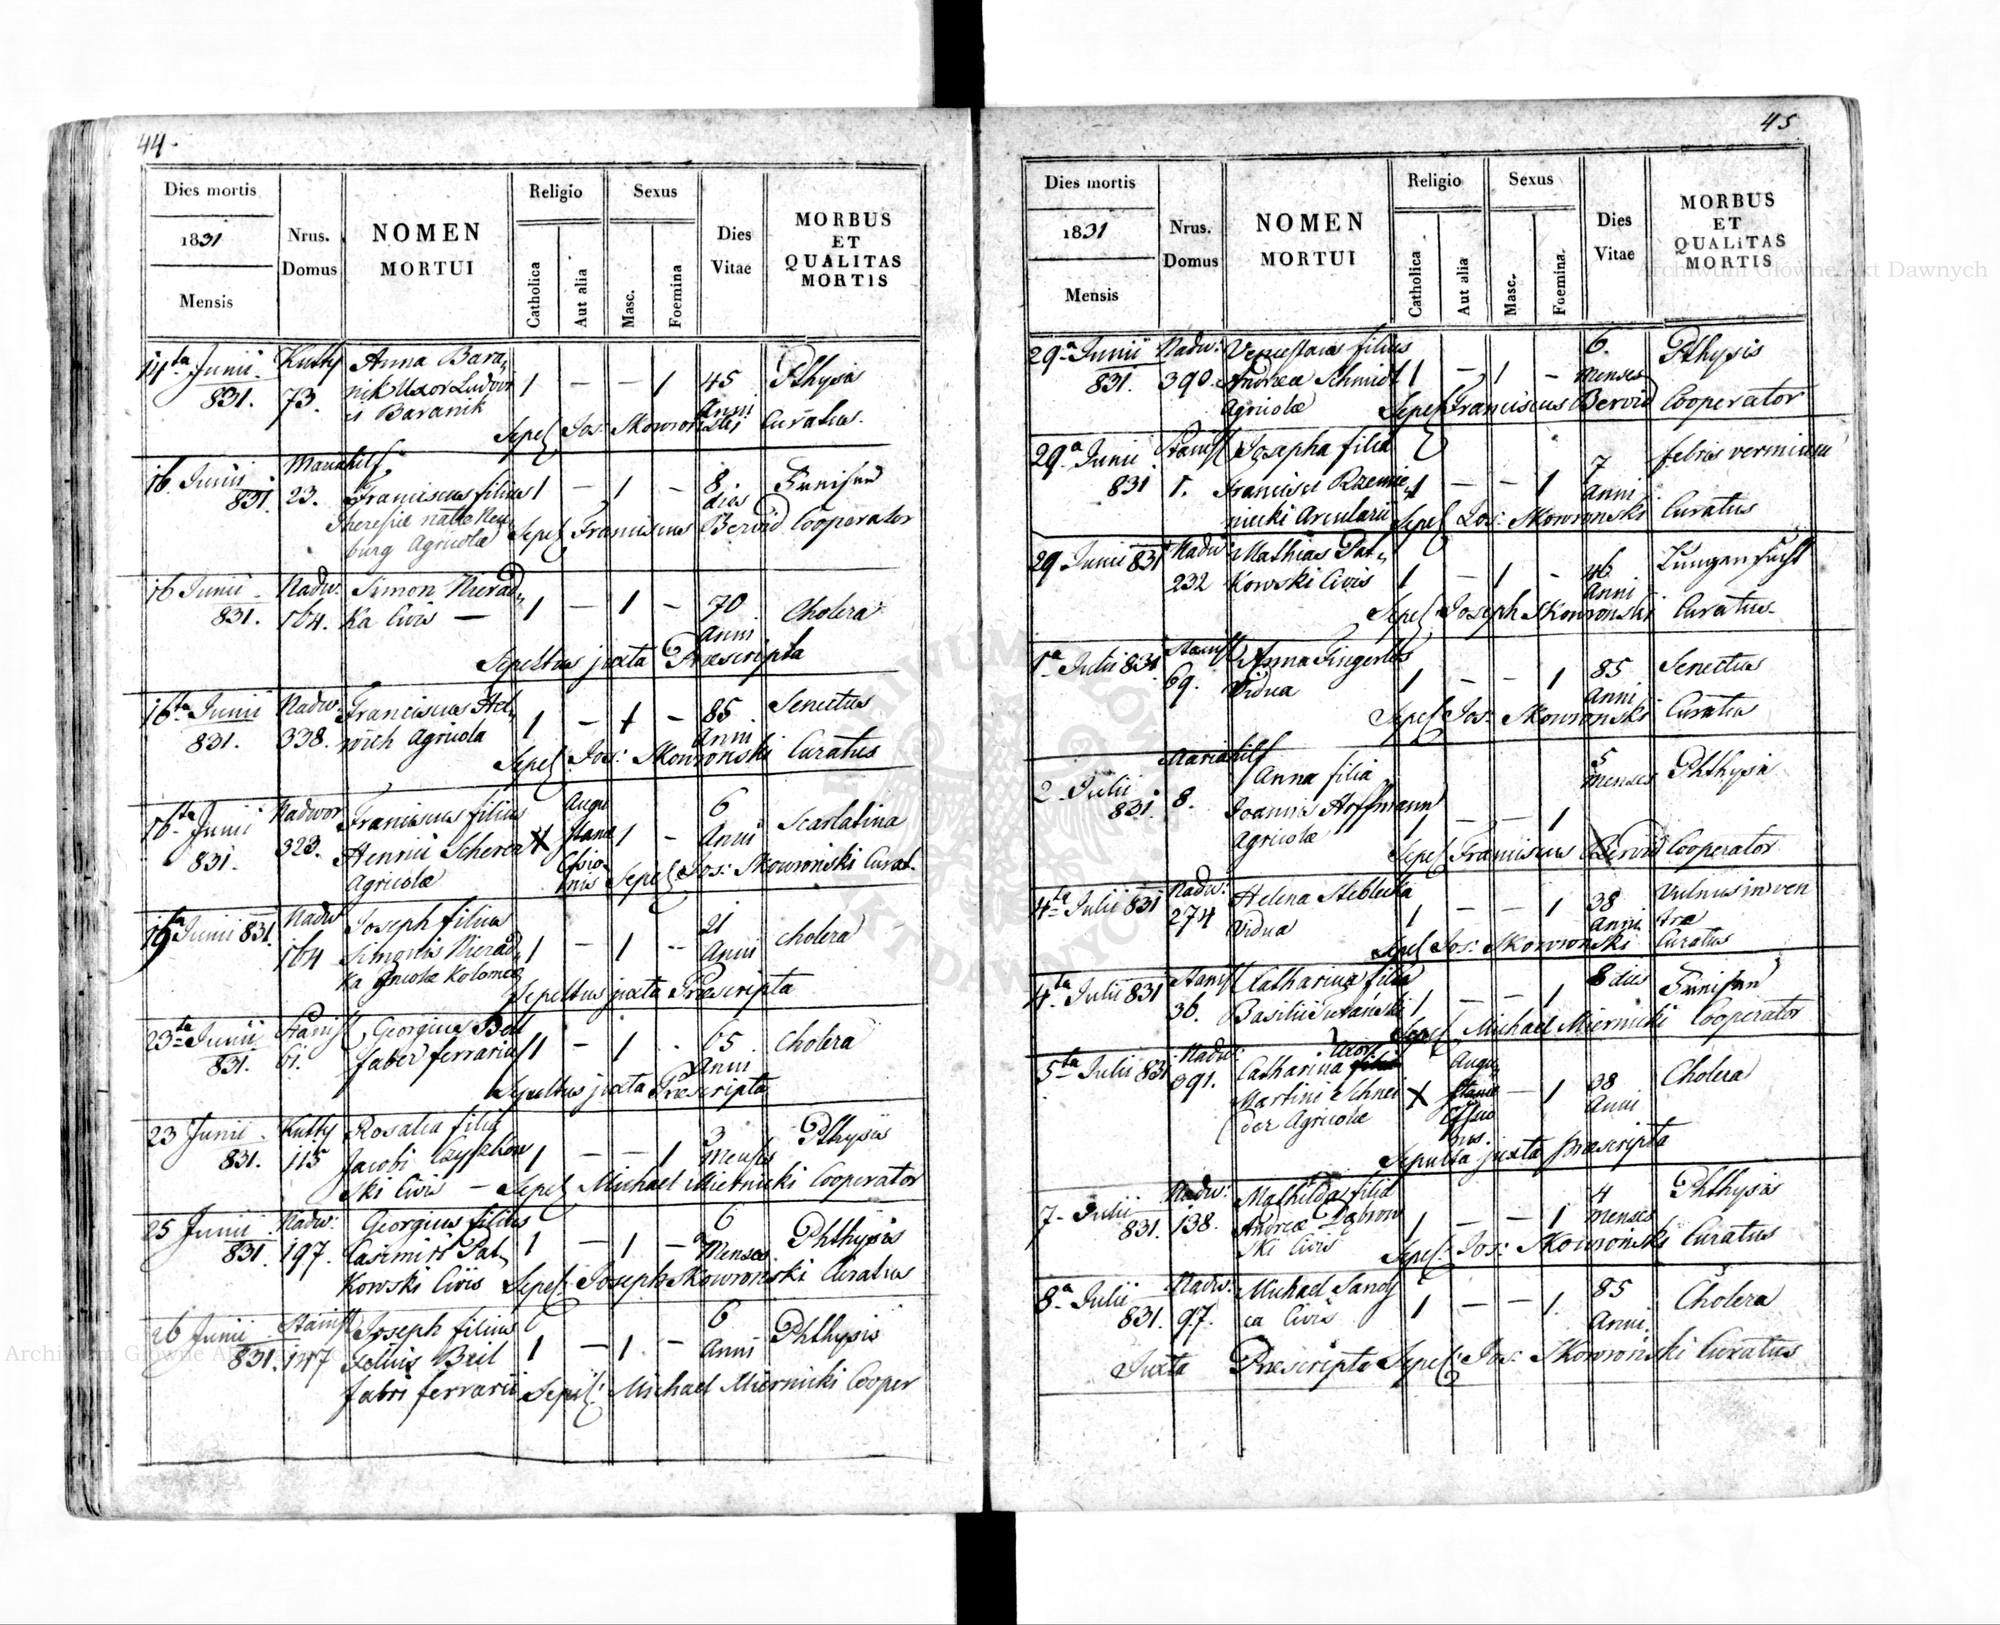 44.
Dies mortis
1831
Mensis
Nrus.
Domus
NOMEN
MORTUI
Religio
Catholica
Aut alia
Sexus
Masc.
Foemina
Dies
Vitae
MORBUS
ET
QUALITAS
MORTIS
14ta Junii Kutty Anna Bara,
831. 73. nik Uxor Ludovi 1 — — 1 45 Pthysis
ci Baranik Anni
Sepel Jos: Skowronski Curatus.
16. Junii Mariahilf
831. 23. Franciscus filius 1 — 1 — 8 dies
Theresiæ natæ Neu
burg Agricolæ Sepel Franciscus Berwid Cooperator
16 Junii Nadw: Simon Nierad,
831. 164. ka Civis — 1 — 1 — 70 Anni Cholera
Sepultus juxta Præscripta
16ta Junii Nadw: Franciscus Hel,
831. 338. wich Agricola 1 — 1 — 85 Anni Senectus
Sepel Jos: Skowronski Curatus
16ta Junii Nadwor Franciscus filius Augu 6
831. 323. Henrici Scherer stanæ 1 — Anni Scarlatina
Agricolæ
Sepel Jos: Skowronski Curat.
19ta Junii 831. Nadw Joseph filius 21
164 Simonis Nierad, 1 — 1 — Anni cholera
ka
Sepultus juxta Præscripta
23ta Junii Stanisl Georgius Bell
831. 61. faber ferrarius 1 — 1 . 65 Anni Cholera
Sepultus juxta Præscripta
23 Junii Kutty Rosalia filia 3 Pthysis
831. 115 Jacobi 1 — — 1 menses
ski Civis — Sepel Michael Miernicki Cooperator
25 Junii Nadw: Georgius filius 6
831. 197. Casimiri Pat, 1 — 1 — Menses Phthysis
kowski Civis Sepel: Joseph Skowronski Curatus
26 Junii Stanisl Joseph filius 6
831. 147 Felicis Bril 1 — 1 — Anni Phthysis
fabri ferrarii Sepel: Michael Miernicki Cooper
45
Dies mortis
1831
Mensis
Nrus.
Domus
NOMEN
MORTUI
Religio
Catholica
Aut alia
Sexus
Masc.
Foemina.
Dies
Vitae
MORBUS
ET
QUALiTAS
MORTIS
29a Junii Nadw: Venceslaus filius 6.
831. 390. Andreæ Schmidt 1 — 1 — menses Pthysis
Agricolæ Sepel Franciscus Berwid Cooperator
29a Junii Stanisl Josepha filia 7 febris vermium
831 1. Francisci Rzemie, 1 — — 1 Anni
niecki Arcularii Sepel Jos: Skowronski Curatus
29 Junii 831 Nadw Mathias Pat,
232 kowski Civis 1 — 1 — 46 Anni Lungensucht
Sepel Joseph Skowronski Curatus
1a Julii 831 Stanisl Anna Fingerles
69. Vidua 1 — — 1 85 Anni Senectus
Sepel Jos: Skowronski Curatus
2. Julii Mariahilf Anna filia 5 menses Phthysis
831. 8. Joannis Hoffmann
Agricolæ 1 — — 1
Sepel Franciscus Berwid Cooperator
4ta Julii 831 Nadw: Helena Steblecka Vulnus in ven
274 Vidua 1 — — 1 38 Anni træ
Sepel Jos: Skowronski Curatus
4ta Julii 831 Stanisl Catharina filia 8 dies
36. Basilii 1 — — 1
Sepel Michael Miernicki Cooperator
5ta Julii 831 Nadw: Catharina Uxor Augu,
391. Martini Schnei stanæ — 1 38 Anni Cholera
der Agricolæ
Sepulta juxta præscripta
7. Julii Nadw: Mathilda filia 4 Phthysis
831. 138. Andreæ Dąbrow 1 — — 1 menses
ski Civis Sepel: Jos: Skowronski Curatus
8a Julii Nadw: Michael Sandy 85
831. 97. ca Civis 1 — — 1. Anni Cholera
Juxta Præscripta Sepel: Jos: Skowronski Curatus
Archiwum Główne Akt Dawnych